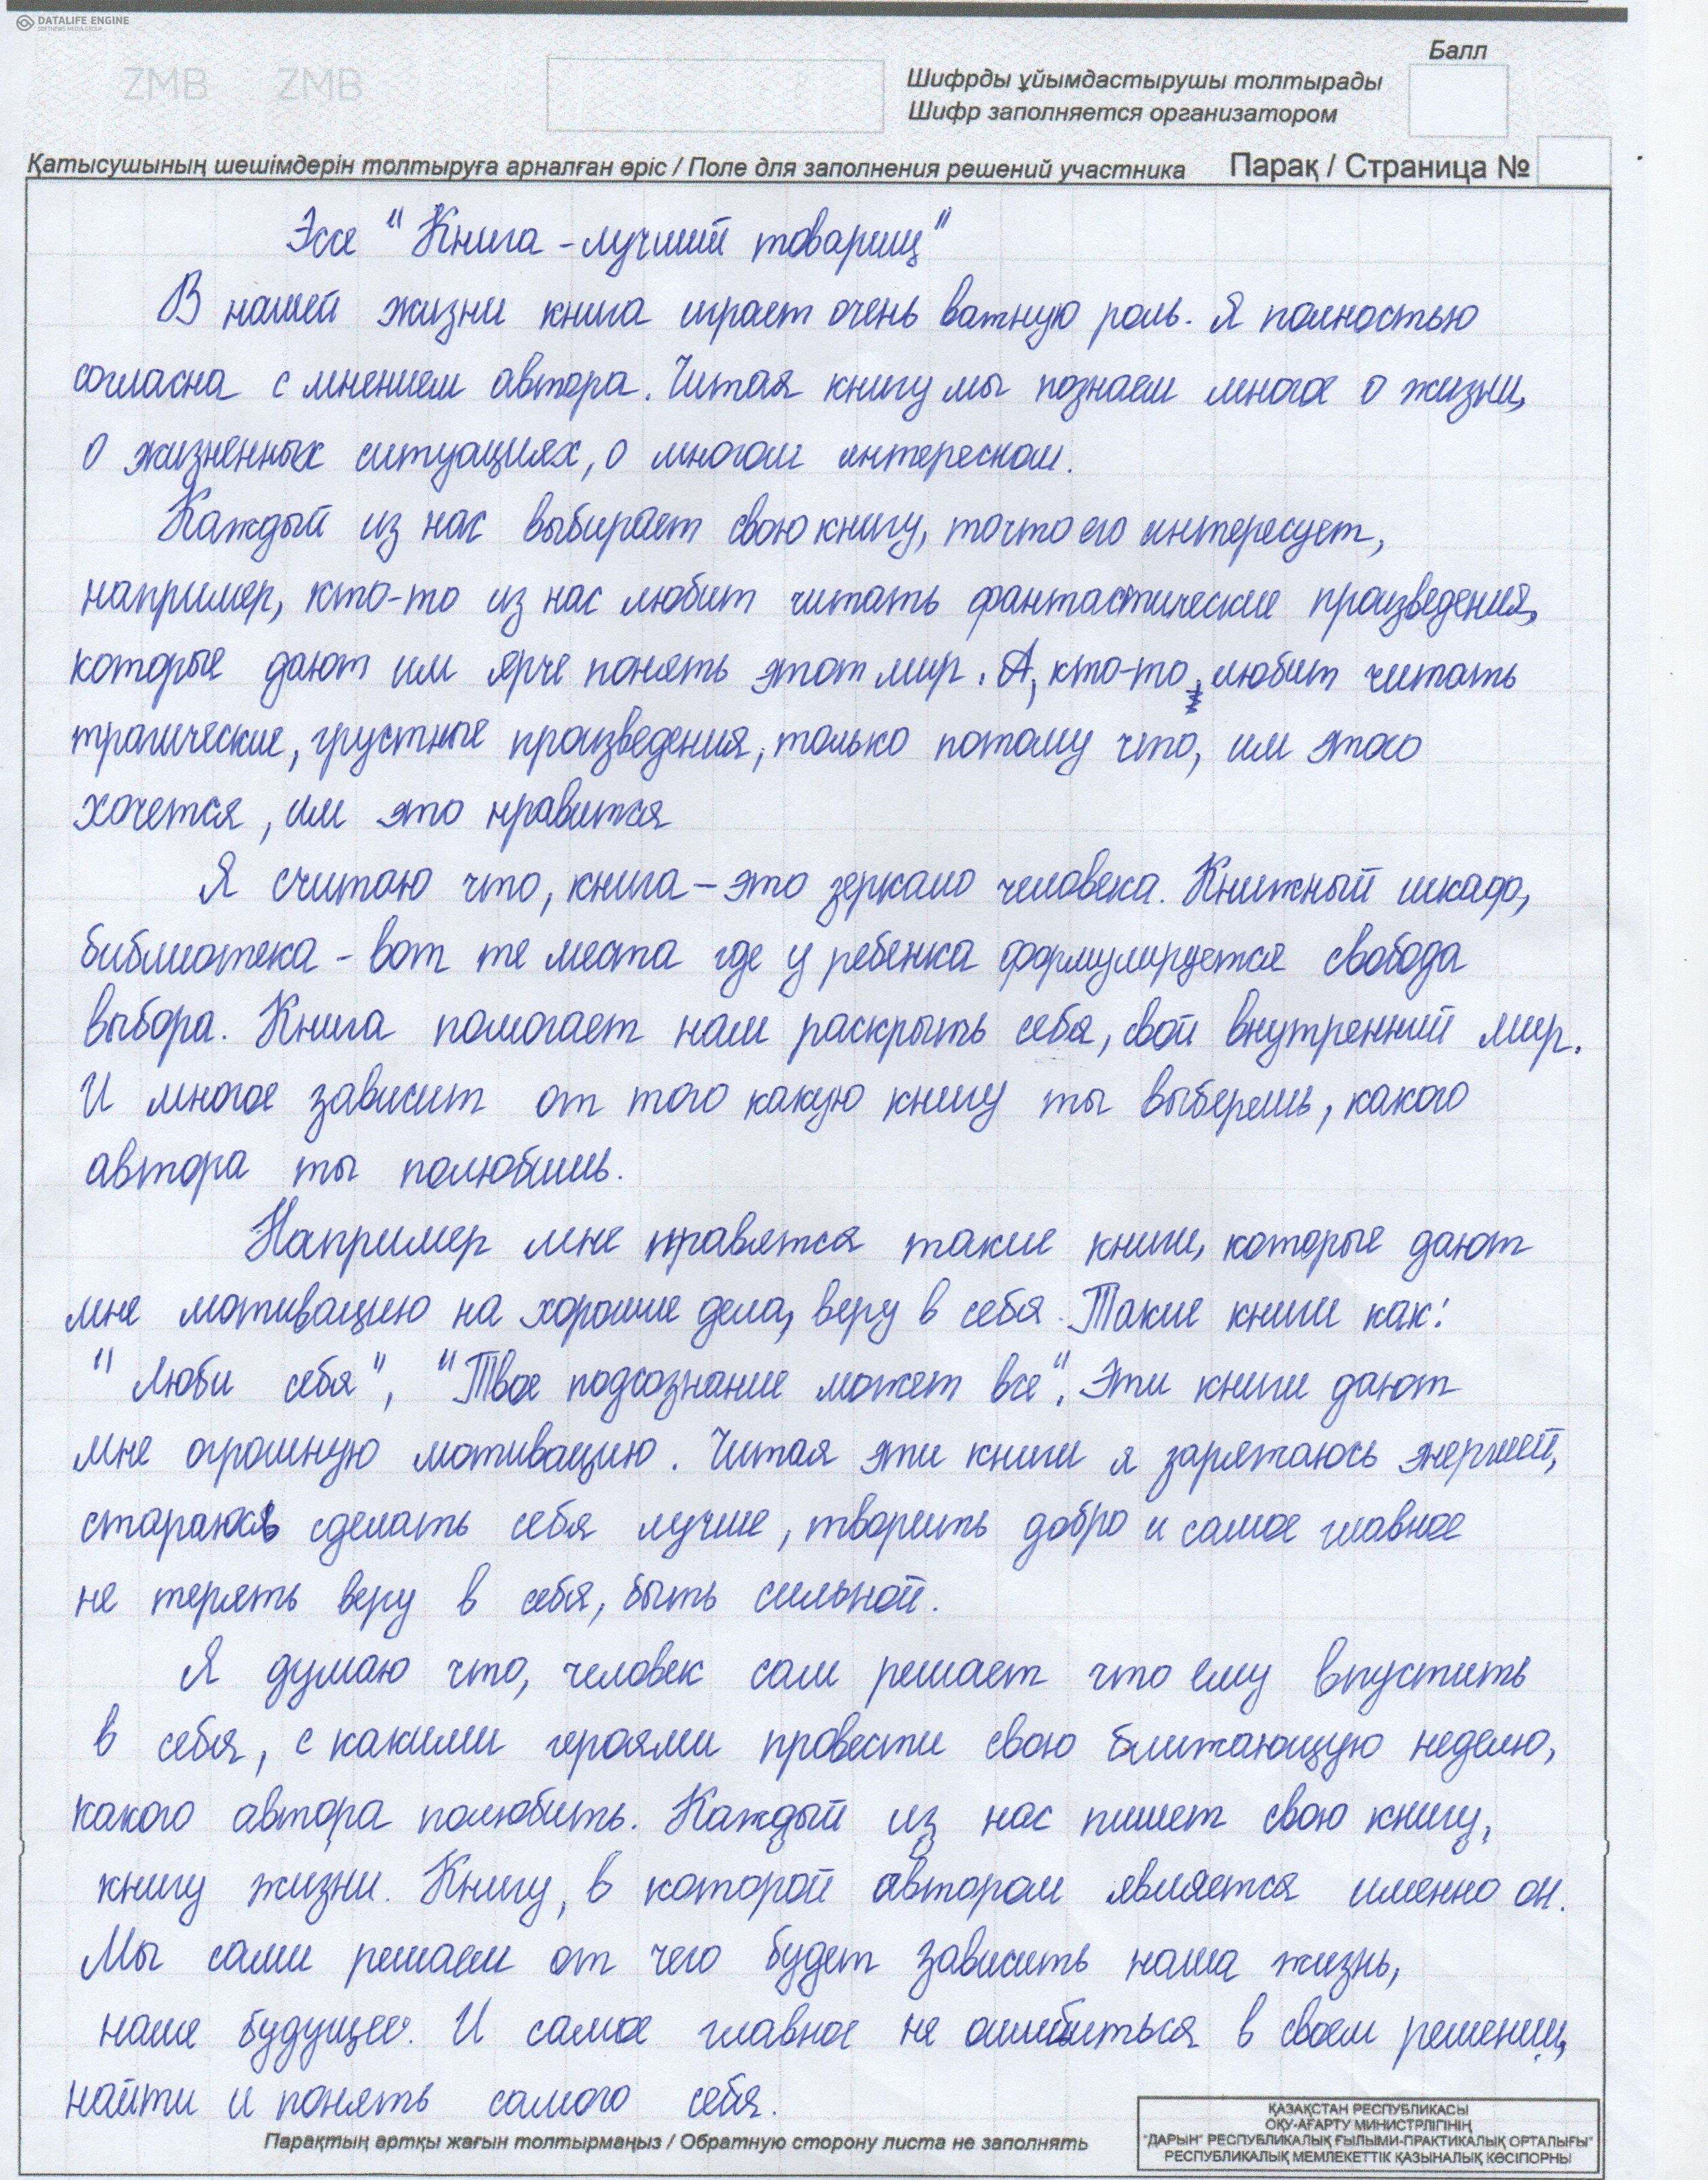 DATALIFE ENGINE
SOFTNEWS MEDIA GROUP
ZMB ZMB
Балл
Шифрды ұйымдастырушы толтырады
Шифр заполняется организатором
Қатысушының шешімдерін толтыруға арналған өріс / Поле для заполнения решений участника Парақ / Страница №
Эссе "Книга - лучший товарищ"
В нашей жизни книга играет очень важную роль. Я полностью
согласна с мнением автора. Читая книгу мы познаем многое о жизни,
о жизненных ситуациях, о многом интересном.
Каждый из нас выбирает свою книгу, то что его интересует,
например, кто-то из нас любит читать фантастические произведения,
которые дают им ярче понять этот мир. А, кто-то любит читать
трагические, грустные произведения, только потому что, им этого
хочется, им это нравится
Я считаю что, книга – это зеркало человека. Книжный шкаф,
библиотека - вот те места где у ребенка формулируется свобода
выбора. Книга помогает нам раскрыть себя, свой внутренний мир.
И многое зависит от того какую книгу ты выберешь, какого
автора ты полюбишь.
Например мне нравятся такие книги, которые дают
мне мотивацию на хорошие дела, веру в себя. Такие книги как:
"Люби себя", "Твое подсознание может все". Эти книги дают
мне огромную мотивацию. Читая эти книги я заряжаюсь энергией,
стараюсь сделать себя лучше, творить добро и самое главное
не терять веру в себя, быть сильной.
Я думаю что, человек сам решает что ему впустить
в себя, с какими героями провести свою ближающую неделю,
какого автора полюбить. Каждый из нас пишет свою книгу,
книгу жизни. Книгу, в которой автором является именно он.
Мы сами решаем от чего будет зависить наша жизнь,
наше будущее. И самое главное не ошибиться в своем решении,
найти и понять самого себя.
Парақтың артқы жағын толтырмаңыз / Обратную сторону листа не заполнять
ҚАЗАҚСТАН РЕСПУБЛИКАСЫ
ОҚУ-АҒАРТУ МИНИСТРЛІГІНІҢ
"ДАРЫН" РЕСПУБЛИКАЛЫҚ ҒЫЛЫМИ-ПРАКТИКАЛЫҚ ОРТАЛЫҒЫ"
РЕСПУБЛИКАЛЫҚ МЕМЛЕКЕТТІК ҚАЗЫНАЛЫҚ КӘСІПОРНЫ